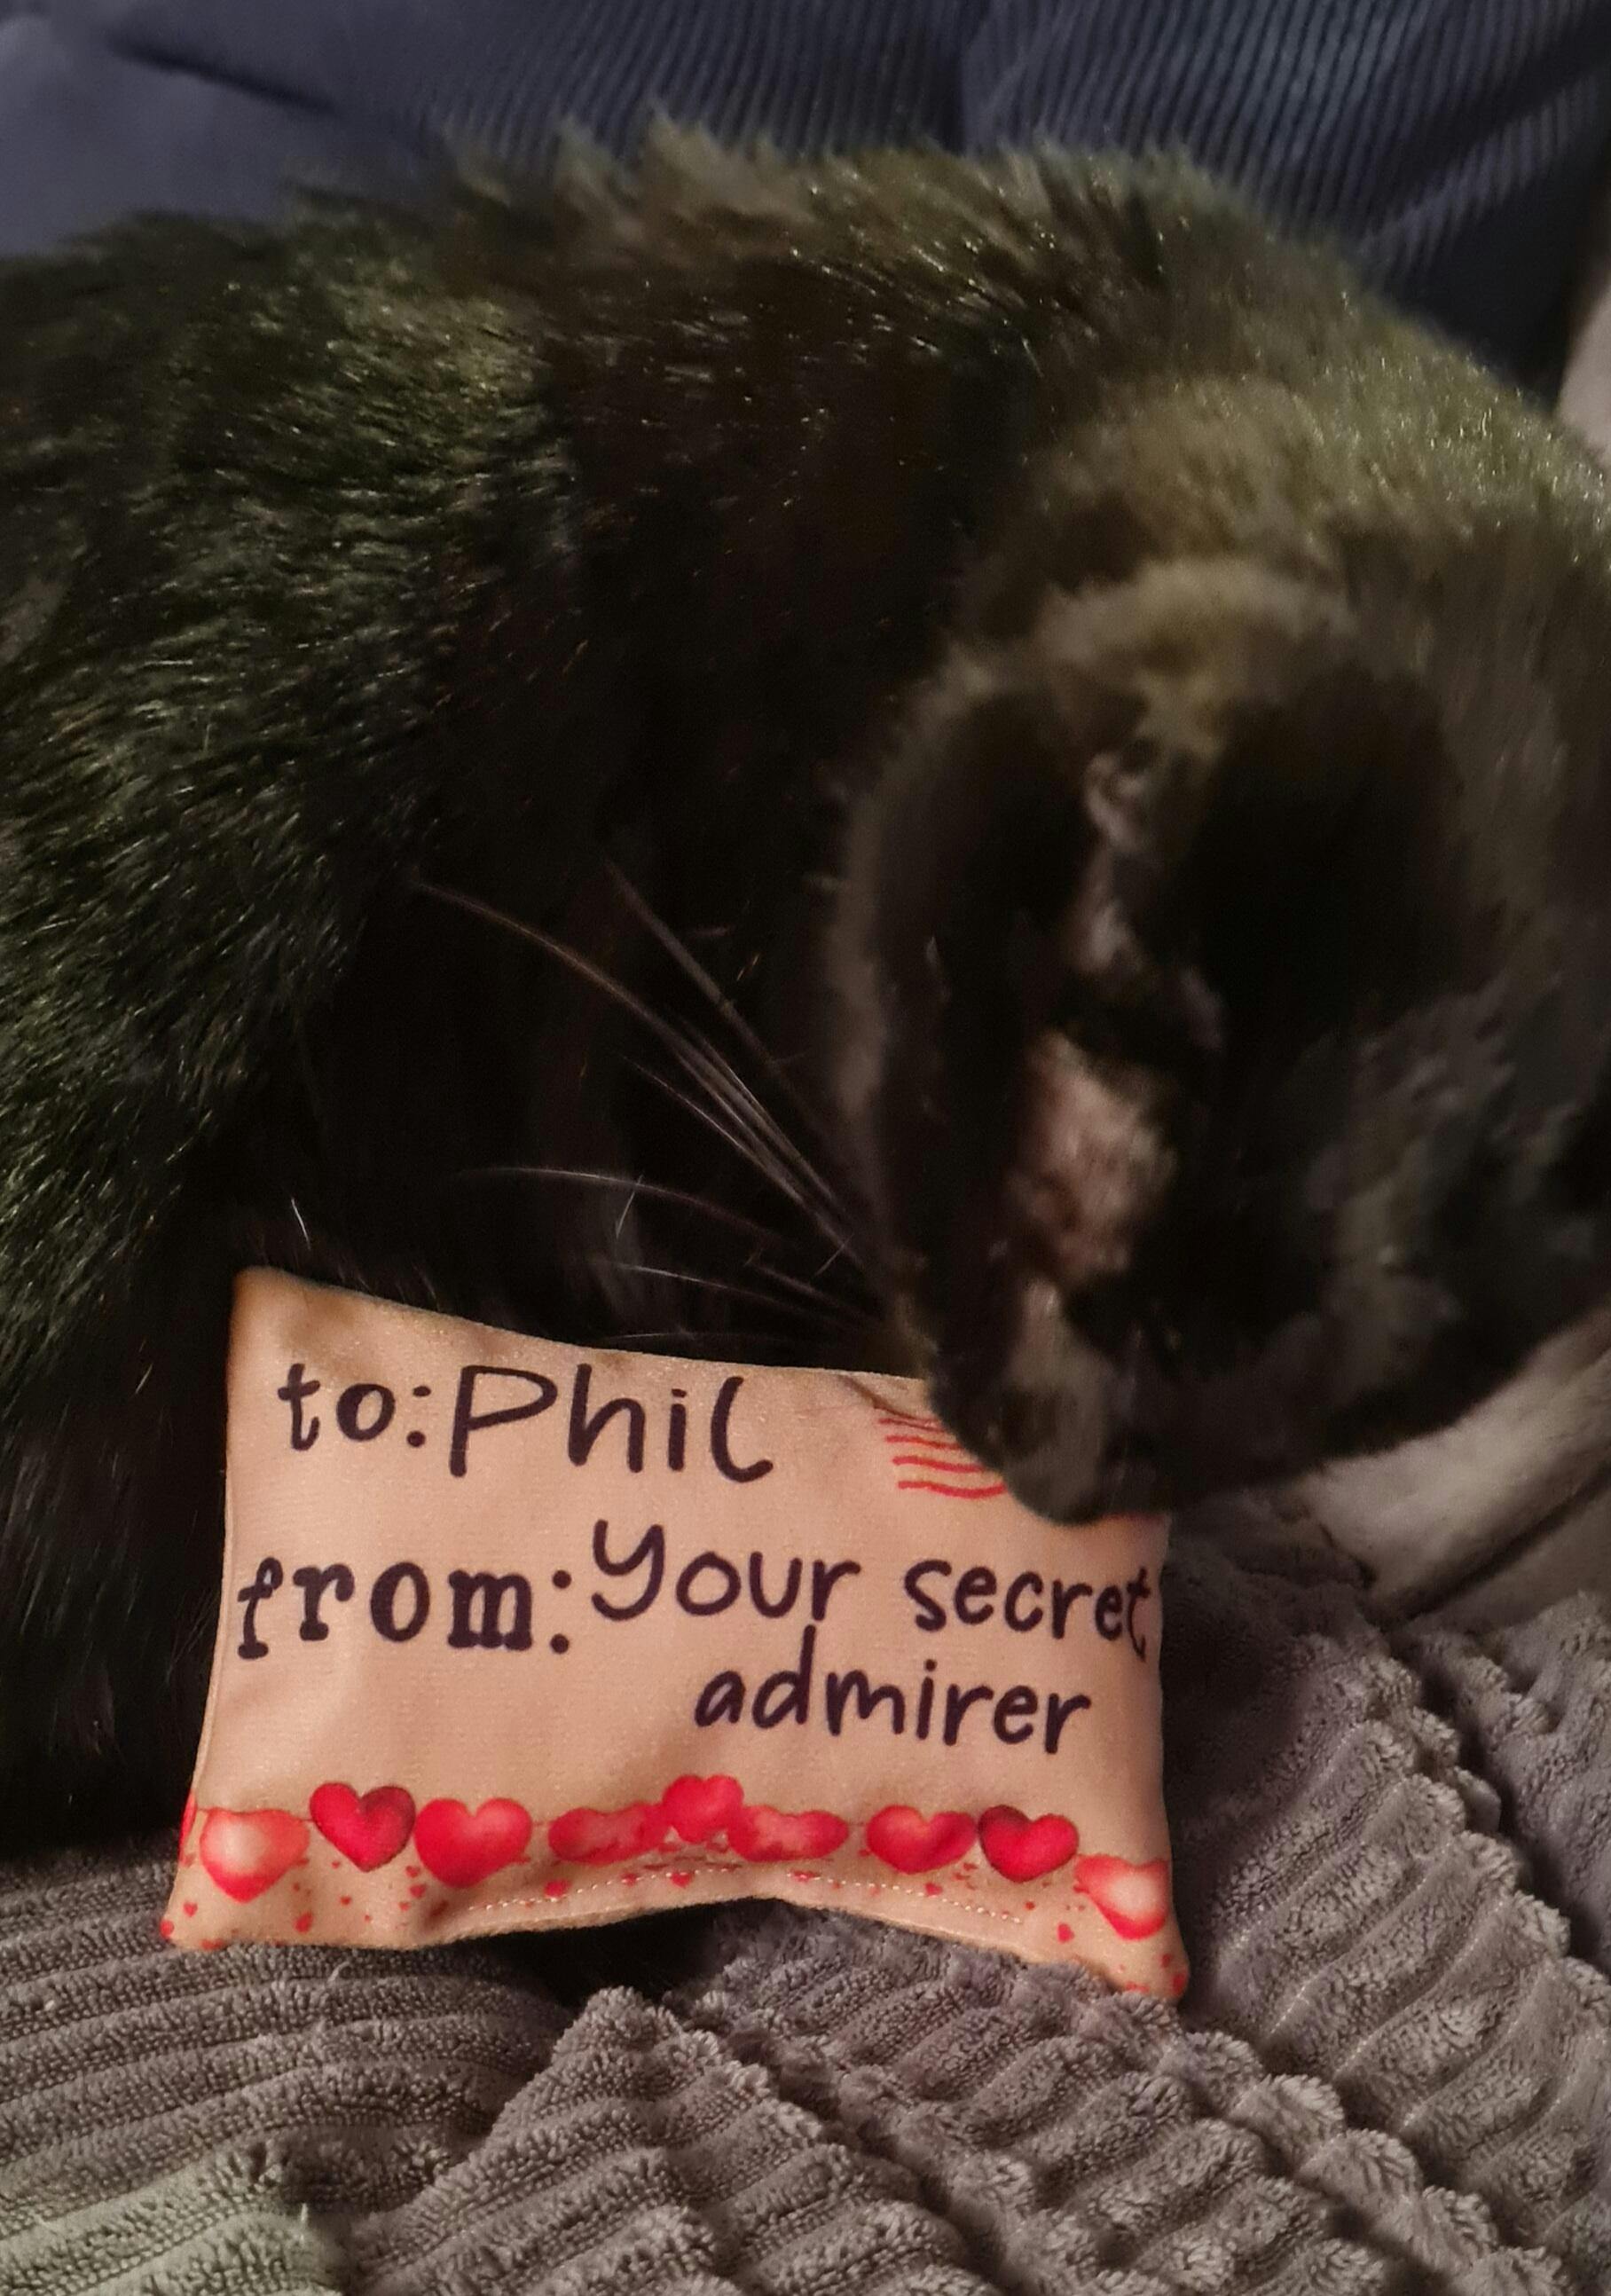 to: Phil
from: Your secret
admirer